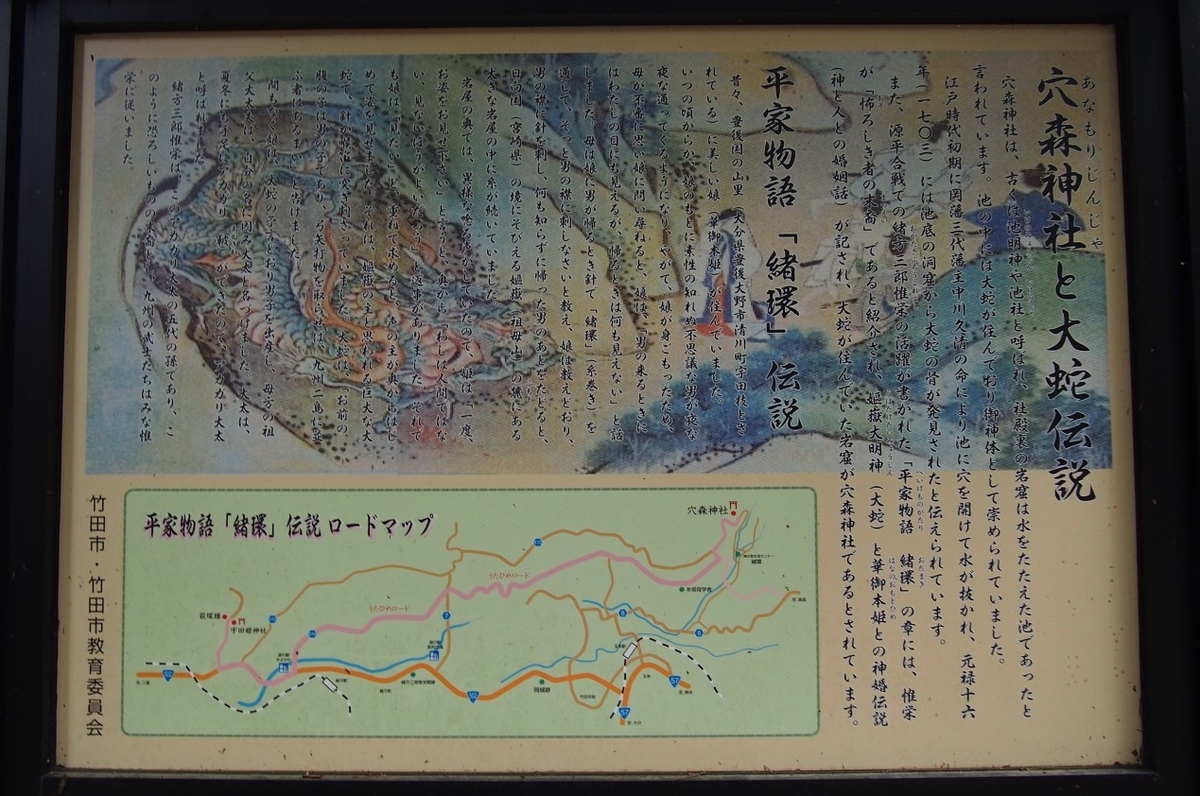 あなもりじんじゃ
穴森神社と大蛇伝説
穴森神社は、古くは池明神や池社と呼ばれ、社殿裏の岩窟は水をたたえた池であったと
言われています。池の中には大蛇が住んで居り御神体として崇められていました。
江戸時代初期に岡藩三代藩主中川久清の命により池に穴を開けて水が抜かれ、元禄十六
年(一七〇三)には池底の洞窟から大蛇の骨が発見されたと伝えられています。
また、源平合戦での緒方三郎惟栄の活躍が書かれた「平家物語 緒環」の章には、惟栄
が「怖ろしき者の末裔」であると紹介され、嫗嶽大明神(大蛇)と華御本姫との神婚伝説
(神と人との婚姻話)が記され、大蛇が住んでいた岩窟が穴森神社であるとされています。
平家物語「緒環」伝説
昔々、豊後国の山里(大分県豊後大野市清川町宇田枝とさ
れている)に美しい娘(華御本姫)が住んでいました。
いつの頃からか、娘のもとに素性の知れぬ不思議な男が夜な
夜な通ってくるようになり、やがて、娘が身ごもったため、
母が不審に思い娘に問い尋ねると、娘は、「男の来るときに
はわたしの目にも見えるが、帰るときは何も見えない」と話
しました。母は娘に男が帰るとき針で「緒環」(糸巻き)を
通して、そっと男の襟に刺しなさいと教え、娘は教えどおり、
男の襟に針を刺し、何も知らずに帰った男のあとをたどると、
日向国(宮崎県)の境にそびえる嫗嶽(祖母山)の麓にある
大きな岩屋の中に糸が続いていました。
岩屋の奥では、異様な唸る声がしていたので、姫は「一度、
お姿をお見せ下さい」と言うと、奥から「わしは人間ではな
い、見ないほうがよいだろう」と返事がありました。それで
も娘は「見たい」と重ねて求めると、声の主が奥からはじ
めて姿を見せました。それは、嫗嶽の主と思われる巨大な大
蛇で、針が喉に突き刺さっていました。大蛇は、「お前の
腹の子は男の子であり、弓矢打物を取らせば、九州二島に並
ぶ者はあるまい」と告げました。
間もなく娘は、大蛇の言ったとおり男子を出産し、母方の祖
父大太夫は、自分の名に因み大太と名づけました。大太は、
夏冬に
と呼ばれました。
緒方三郎惟栄は、このあかがり大太の五代の孫であり、こ
のように恐ろしいものの末裔に、九州の武士たちはみな惟
栄に従いました。
平家物語「緒環」伝説 ロードマップ
穴森神社
緒環
お岩母学舎
うたひめロード
うたひめロード
荻塚様
宇田姫神社
岡城跡
57
57
竹田市・竹田市教育委員会